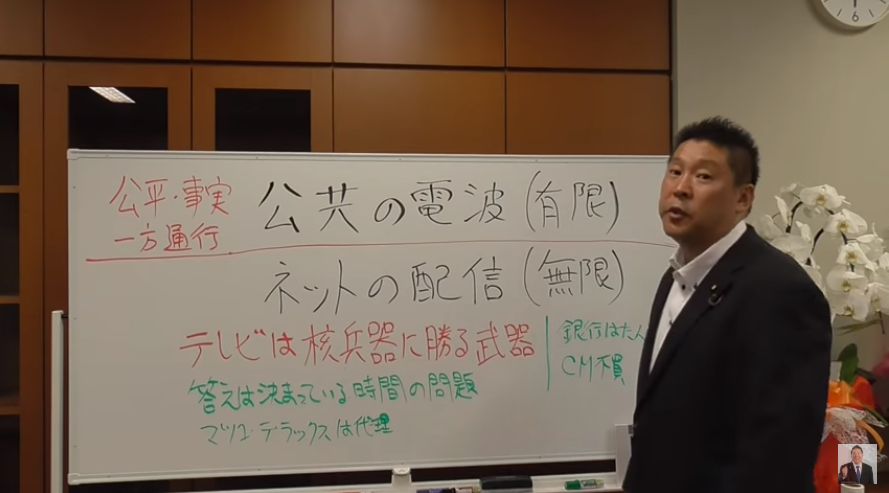 公平・事実
一方通行
公共の電波(有限)
ネットの配信(無限)
テレビは核兵器に勝る武器
銀行はた人
CM不買
答えは決まっている時間の問題
マツコ・デラックスは代理
6